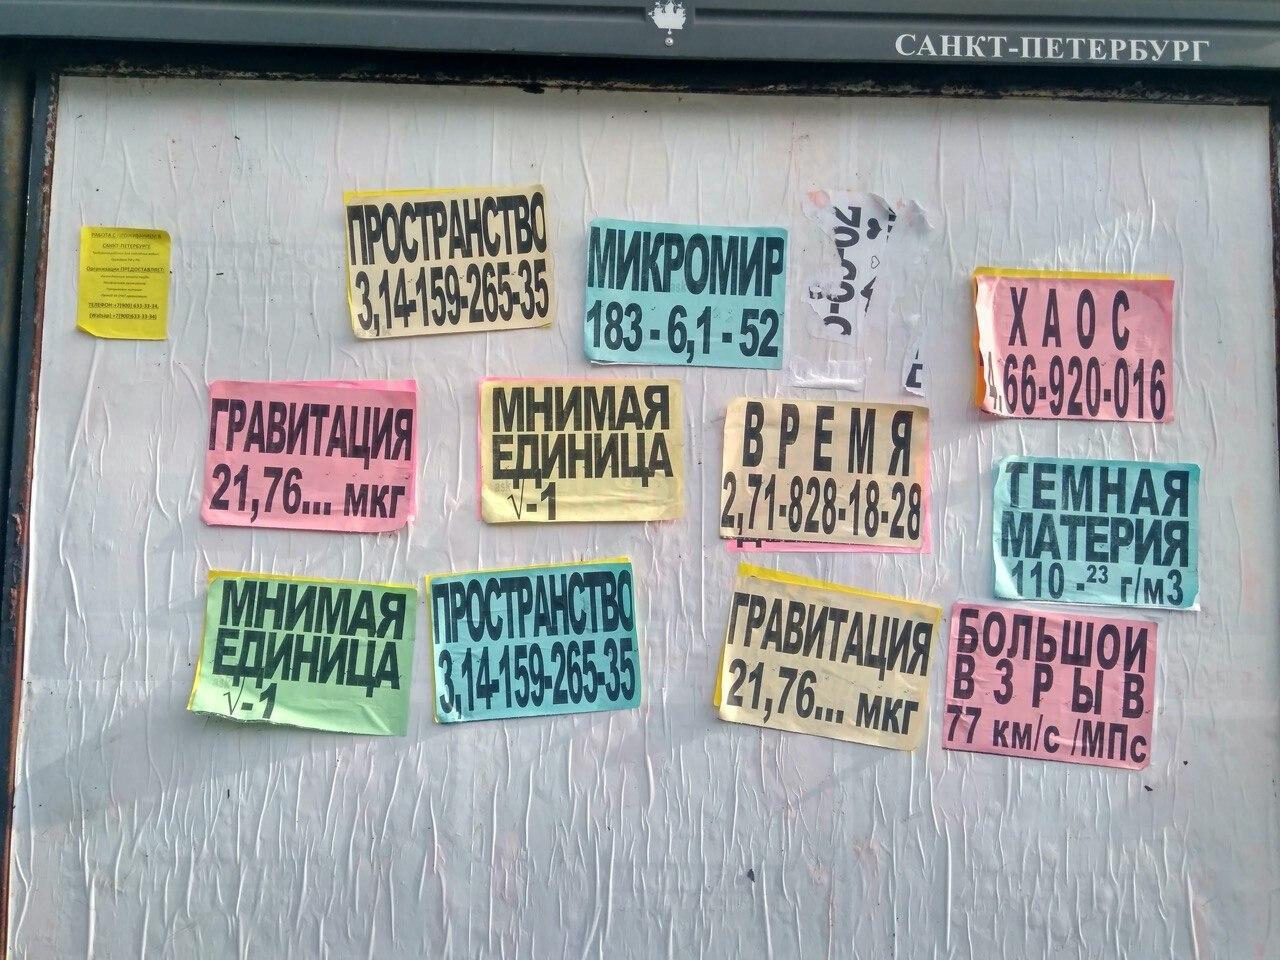 САНКТ-ПЕТЕРБУРГ
САНКТ-ПЕТЕРБУРГЕ
Организация ПРЕДОСТАВЛЯЕТ:
ПРОСТРАНСТВО
3,14-159-265-35
МИКРОМИР
183 - 6,1 - 52
ХАОС
4,66-920-016
ГРАВИТАЦИЯ
21,76... мкг
МНИМАЯ
ЕДИНИЦА
√-1
ВРЕМЯ
2,71-828-18-28
ТЕМНАЯ
МАТЕРИЯ
110 -23 г/м3
МНИМАЯ
ЕДИНИЦА
√-1
ПРОСТРАНСТВО
3,14-159-265-35
ГРАВИТАЦИЯ
21,76... мкг
БОЛЬШОЙ
ВЗРЫВ
77 км/с /МПс